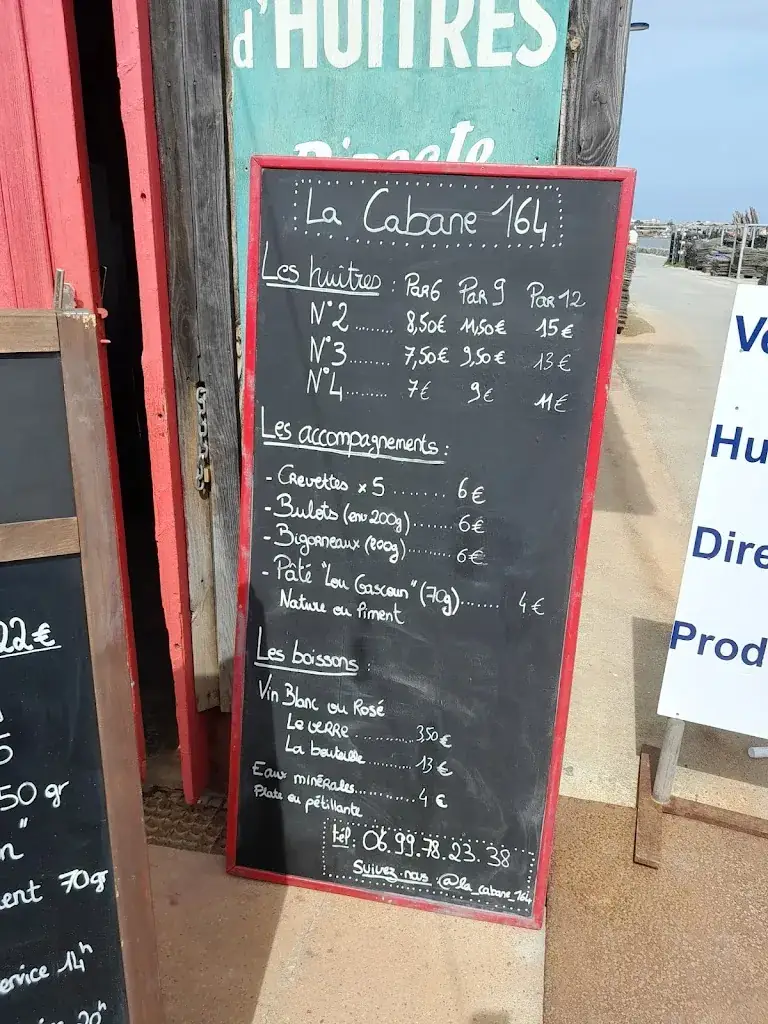 d'HUITRES
La Cabane 164
Les huîtres : Par 6 Par 9 Par 12
N°2 ........ 8,50€ 11,50€ 15€
N°3 ........ 7,50€ 9,50€ 13€
N°4 ......... 7€ 9€ 11€
Les accompagnements :
- Crevettes x 5 ........ 6€
- Bulots (env 200g) ....... 6€
- Bigorneaux (200g) ........ 6€
- Pâté "Lou Gascoun" (70g) ....... 4€
Nature ou Piment
Les boissons :
Vin Blanc ou Rosé
Le verre ............ 3,50€
La bouteille ......... 13€
Eaux minérales ............ 4€
Plate ou pétillante
tél : 06.99.78.23.38
Suivez-nous : @la_cabane_164
22€
5
50 gr
n"
ent 70gr
ervice 14h
20h
Ve
Hu
Dire
Prod